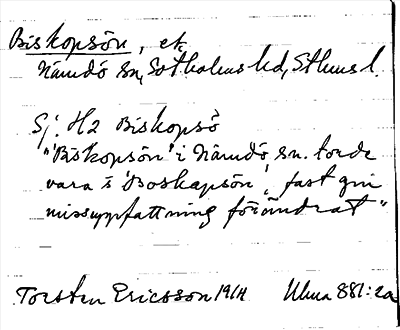 Biskopsön, ek
Nämdö sn, Sotholms hd, Sthms l
Sj. H2 Biskopsö
"'Biskopsön' i Nämdö sn. torde
vara = 'Boskapsön', fast gm
missuppfattning förändrat"
Torsten Ericsson 1914 Ulma 881:2a